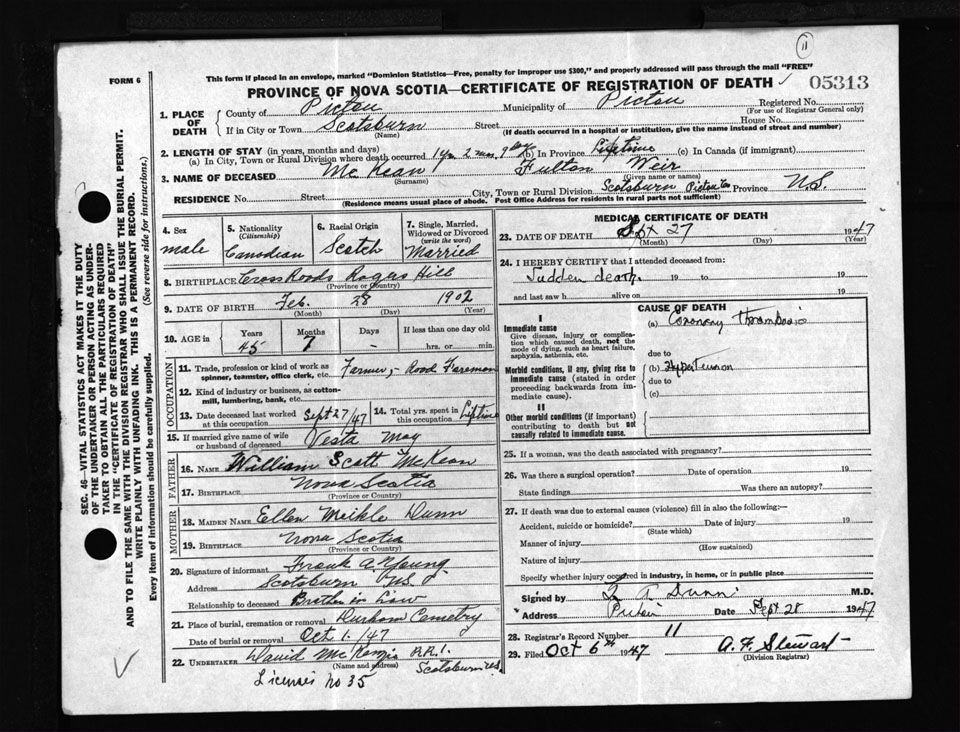 11
This form if placed in an envelope, marked "Dominion Statistics—Free, penalty for improper use $300," and properly addressed will pass through the mail "FREE"
FORM 6
PROVINCE OF NOVA SCOTIA—CERTIFICATE OF REGISTRATION OF DEATH
05313
1. PLACE OF DEATH
County of Pictou Municipality of Pictou Registered No.
(For use of Registrar General only)
If in City or Town Scotsburn Street House No.
(Name) (If death occurred in a hospital or institution, give the name instead of street and number)
2. LENGTH OF STAY (in years, months and days)
(a) In City, Town or Rural Division where death occurred 1 yr 2 mos 9 day (b) In Province Lifetime (c) In Canada (if immigrant)
3. NAME OF DECEASED McKean Fulton Weir
(Surname) (Given name or names)
RESIDENCE No. Street City, Town or Rural Division Scotsburn Pictou Co Province N.S.
(Residence means usual place of abode. Post Office Address for residents in rural parts not sufficient)
4. Sex
male
5. Nationality
(Citizenship)
Canadian
6. Racial Origin
Scotch
7. Single, Married, Widowed or Divorced
(write the word)
Married
8. BIRTHPLACE Cross Roads Rogers Hill
(Province or Country)
9. DATE OF BIRTH Feb. 28 1902
(Month) (Day) (Year)
10. AGE in Years Months Days If less than one day old
45 7 - hrs. or min.
OCCUPATION
11. Trade, profession or kind of work as spinner, teamster, office clerk, etc. Farmer, - Road Foreman
12. Kind of industry or business, as cotton-mill, lumbering, bank, etc.
13. Date deceased last worked at this occupation Sept 27/47
14. Total yrs. spent in this occupation Lifetime
15. If married give name of wife or husband of deceased Vesta May
FATHER
16. NAME William Scott McKean
17. BIRTHPLACE Nova Scotia
(Province or Country)
MOTHER
18. MAIDEN NAME Ellen Meikle Dunn
19. BIRTHPLACE Nova Scotia
(Province or Country)
20. Signature of informant Frank A. Young
Address Scotsburn N.S.
Relationship to deceased Brother in Law
21. Place of burial, cremation or removal Durham Cemetry
Date of burial or removal Oct 1./47
22. UNDERTAKER David McKenzie R.R.1.
(Name and address) Scotsburn N.S.
No 35
MEDICAL CERTIFICATE OF DEATH
23. DATE OF DEATH Sept 27 1947
(Month) (Day) (Year)
24. I HEREBY CERTIFY that I attended deceased from:
Sudden death. 19 to 19
and last saw h alive on 19
CAUSE OF DEATH
I
Immediate cause
Give disease, injury or complication which caused death, not the mode of dying, such as heart failure, asphyxia, asthenia, etc.
(a) Coronary thrombosis
due to
Morbid conditions, if any, giving rise to immediate cause (stated in order proceeding backwards from immediate cause).
(b) Hypertension
due to
(c)
II
Other morbid conditions (if important) contributing to death but not causally related to immediate cause.
25. If a woman, was the death associated with pregnancy?
26. Was there a surgical operation? Date of operation 19
State findings Was there an autopsy?
27. If death was due to external causes (violence) fill in also the following:—
Accident, suicide or homicide? Date of injury 19
(State which)
Manner of injury
(How sustained)
Nature of injury
Specify whether injury occurred in industry, in home, or in public place
Signed by Dunn M.D.
Address Pictou Date Sept 28 1947
28. Registrar's Record Number 11
29. Filed Oct 6th 1947 A. F. Stewart
(Division Registrar)
SEC. 46—VITAL STATISTICS ACT MAKES IT THE DUTY
OF THE UNDERTAKER OR PERSON ACTING AS UNDER-
TAKER TO OBTAIN ALL THE PARTICULARS REQUIRED
IN THE "CERTIFICATE OF REGISTRATION OF DEATH"
AND TO FILE THE SAME WITH THE DIVISION REGISTRAR WHO SHALL ISSUE THE BURIAL PERMIT.
WRITE PLAINLY WITH UNFADING INK. THIS IS A PERMANENT RECORD.
Every item of information should be carefully supplied. (See reverse side for instructions.)